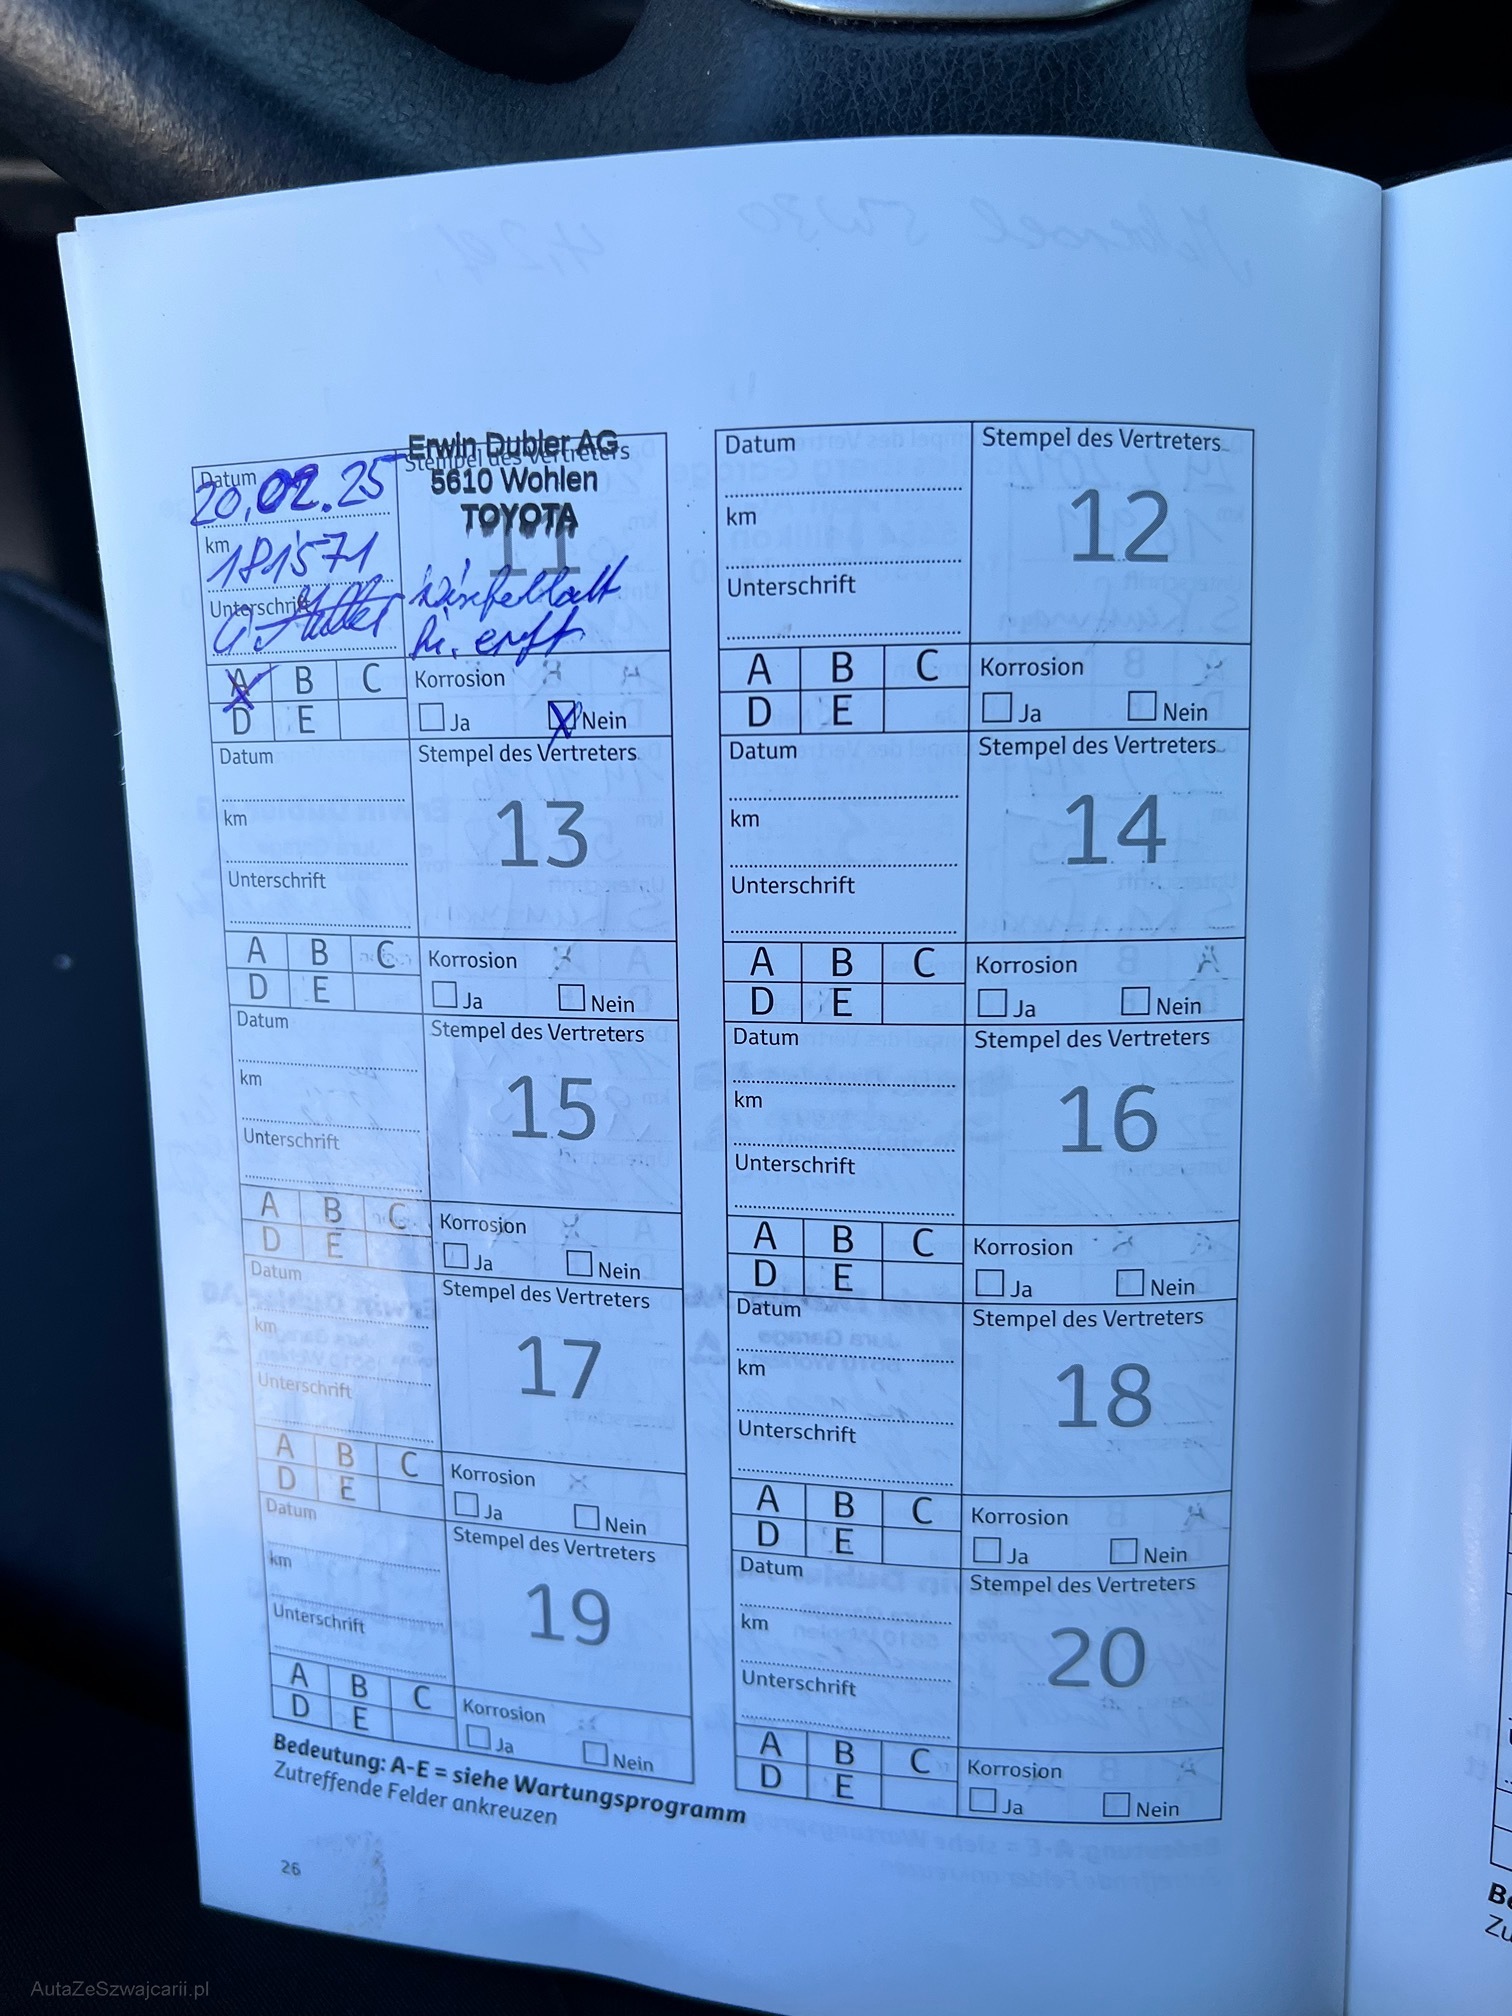 Erwin Dubler AG
Datum Stempel des Vertreters
20.02.25 5610 Wohlen
TOYOTA
km 11
181571
Unterschrift
A B C Korrosion
D E Ja Nein
Datum Stempel des Vertreters
12
km
Unterschrift
A B C Korrosion
D E Ja Nein
Datum Stempel des Vertreters
13
km
Unterschrift
A B C Korrosion
D E Ja Nein
Datum Stempel des Vertreters
14
km
Unterschrift
A B C Korrosion
D E Ja Nein
Datum Stempel des Vertreters
15
km
Unterschrift
A B C Korrosion
D E Ja Nein
Datum Stempel des Vertreters
16
km
Unterschrift
A B C Korrosion
D E Ja Nein
Datum Stempel des Vertreters
17
km
Unterschrift
A B C Korrosion
D E Ja Nein
Datum Stempel des Vertreters
18
km
Unterschrift
A B C Korrosion
D E Ja Nein
Datum Stempel des Vertreters
19
km
Unterschrift
A B C Korrosion
D E Ja Nein
Datum Stempel des Vertreters
20
km
Unterschrift
A B C Korrosion
D E Ja Nein
Bedeutung: A-E = siehe Wartungsprogramm
Zutreffende Felder ankreuzen
26
AutaZeSzwajcarii.pl